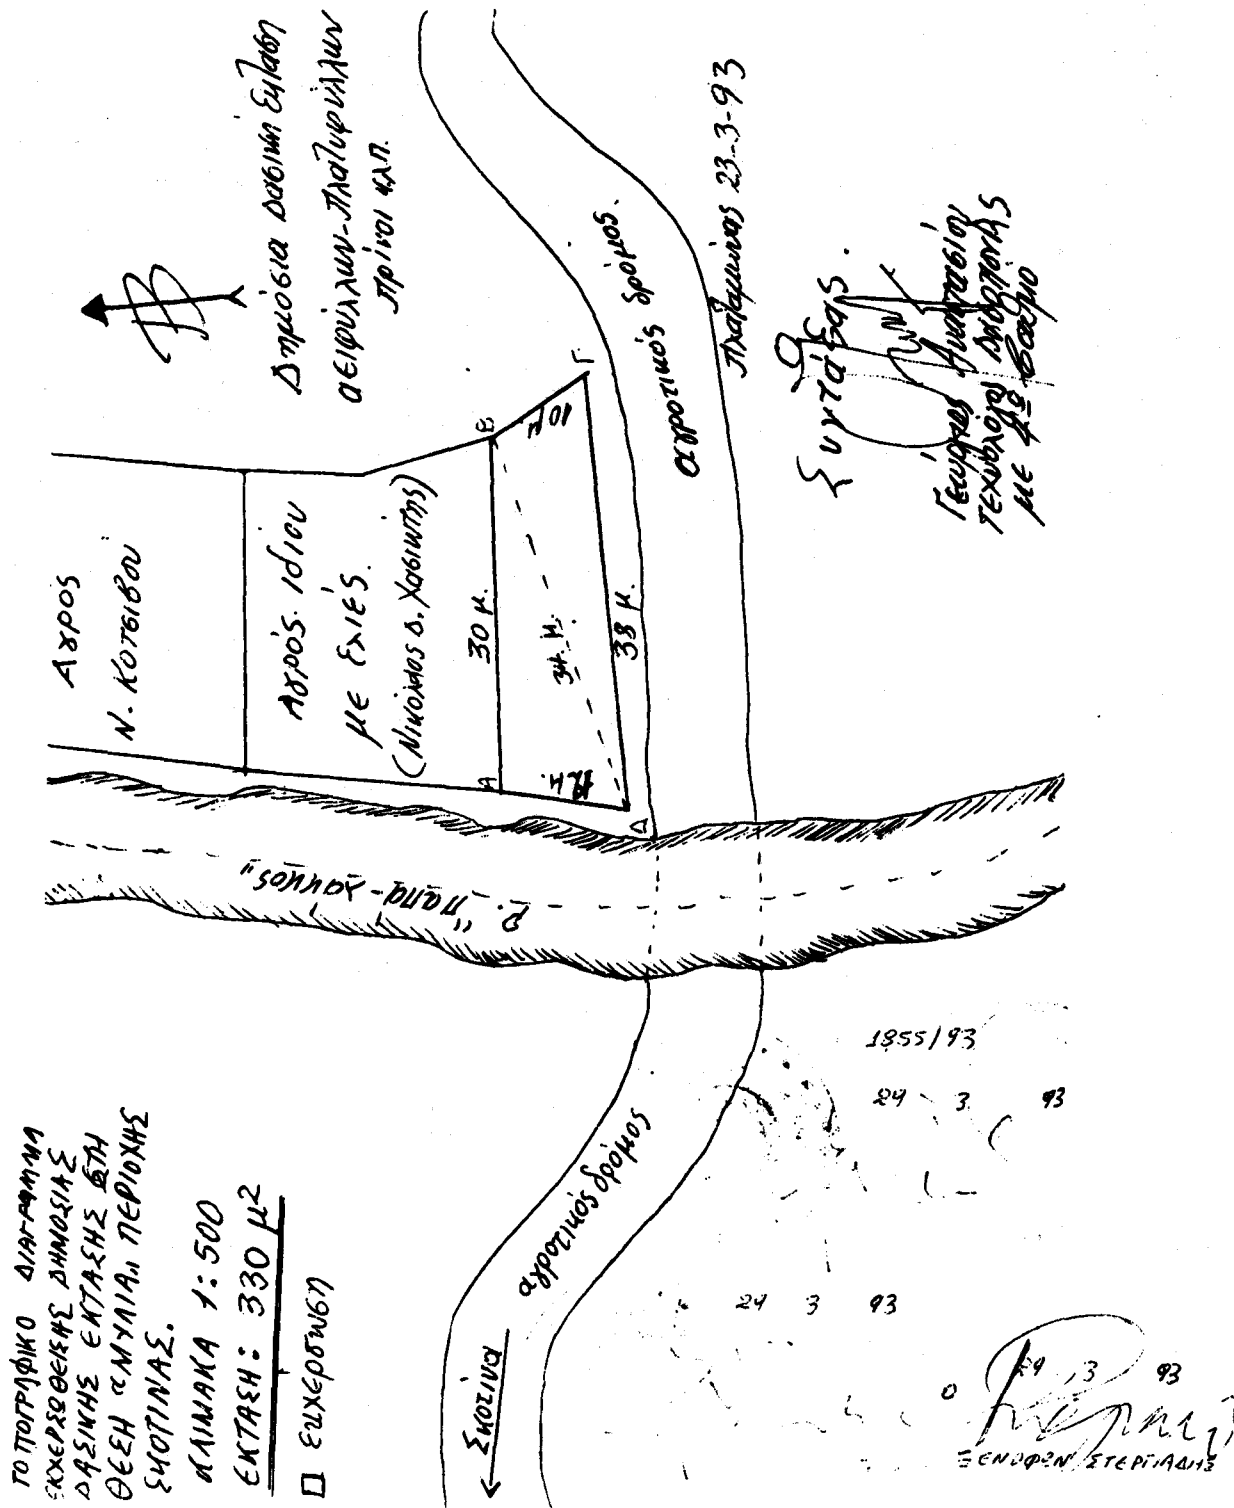 ΤΟΠΟΓΡΑΦΙΚΟ ΔΙΑΓΡΑΜΜΑ
ΕΚΧΕΡΣΩΘΕΙΣΗΣ ΔΗΜΟΣΙΑΣ
ΔΑΣΙΚΗΣ ΕΚΤΑΣΗΣ ΣΤΗ
ΘΕΣΗ "ΜΥΛΙΑ" ΠΕΡΙΟΧΗΣ
ΣΚΟΤΙΝΑΣ.
ΚΛΙΜΑΚΑ 1:500
ΕΚΤΑΣΗ: 330 μ2
εκχερσωση
Σκοτίνα
αγροτικός δρόμος
Ρ. "παπα-λακκος"
Αγρος
Ν. Κοτσιβου
Αγρός ιδίου
με ελιές.
(Νικόλαος Δ. Χασιώτης)
Α
30 μ.
Β
12 μ.
34 μ.
10 μ
Δ
38 μ.
Γ
αγροτικός δρόμος.
Β
Δημόσια Δασική έκταση
αειφύλλων-πλατυφύλλων
πρίνοι κλπ.
Πλαταμώνας 23-3-93
Ο
Συντάξας.
Γεώργιος Αναστασίου
τεχνολόγος δασοπονίας
με 4º βαθμο
1855/93
24 3 93
24 3 93
Ο
24 3 93
ΞΕΝΟΦΩΝ ΣΤΕΡΓΙΑΔΗΣ